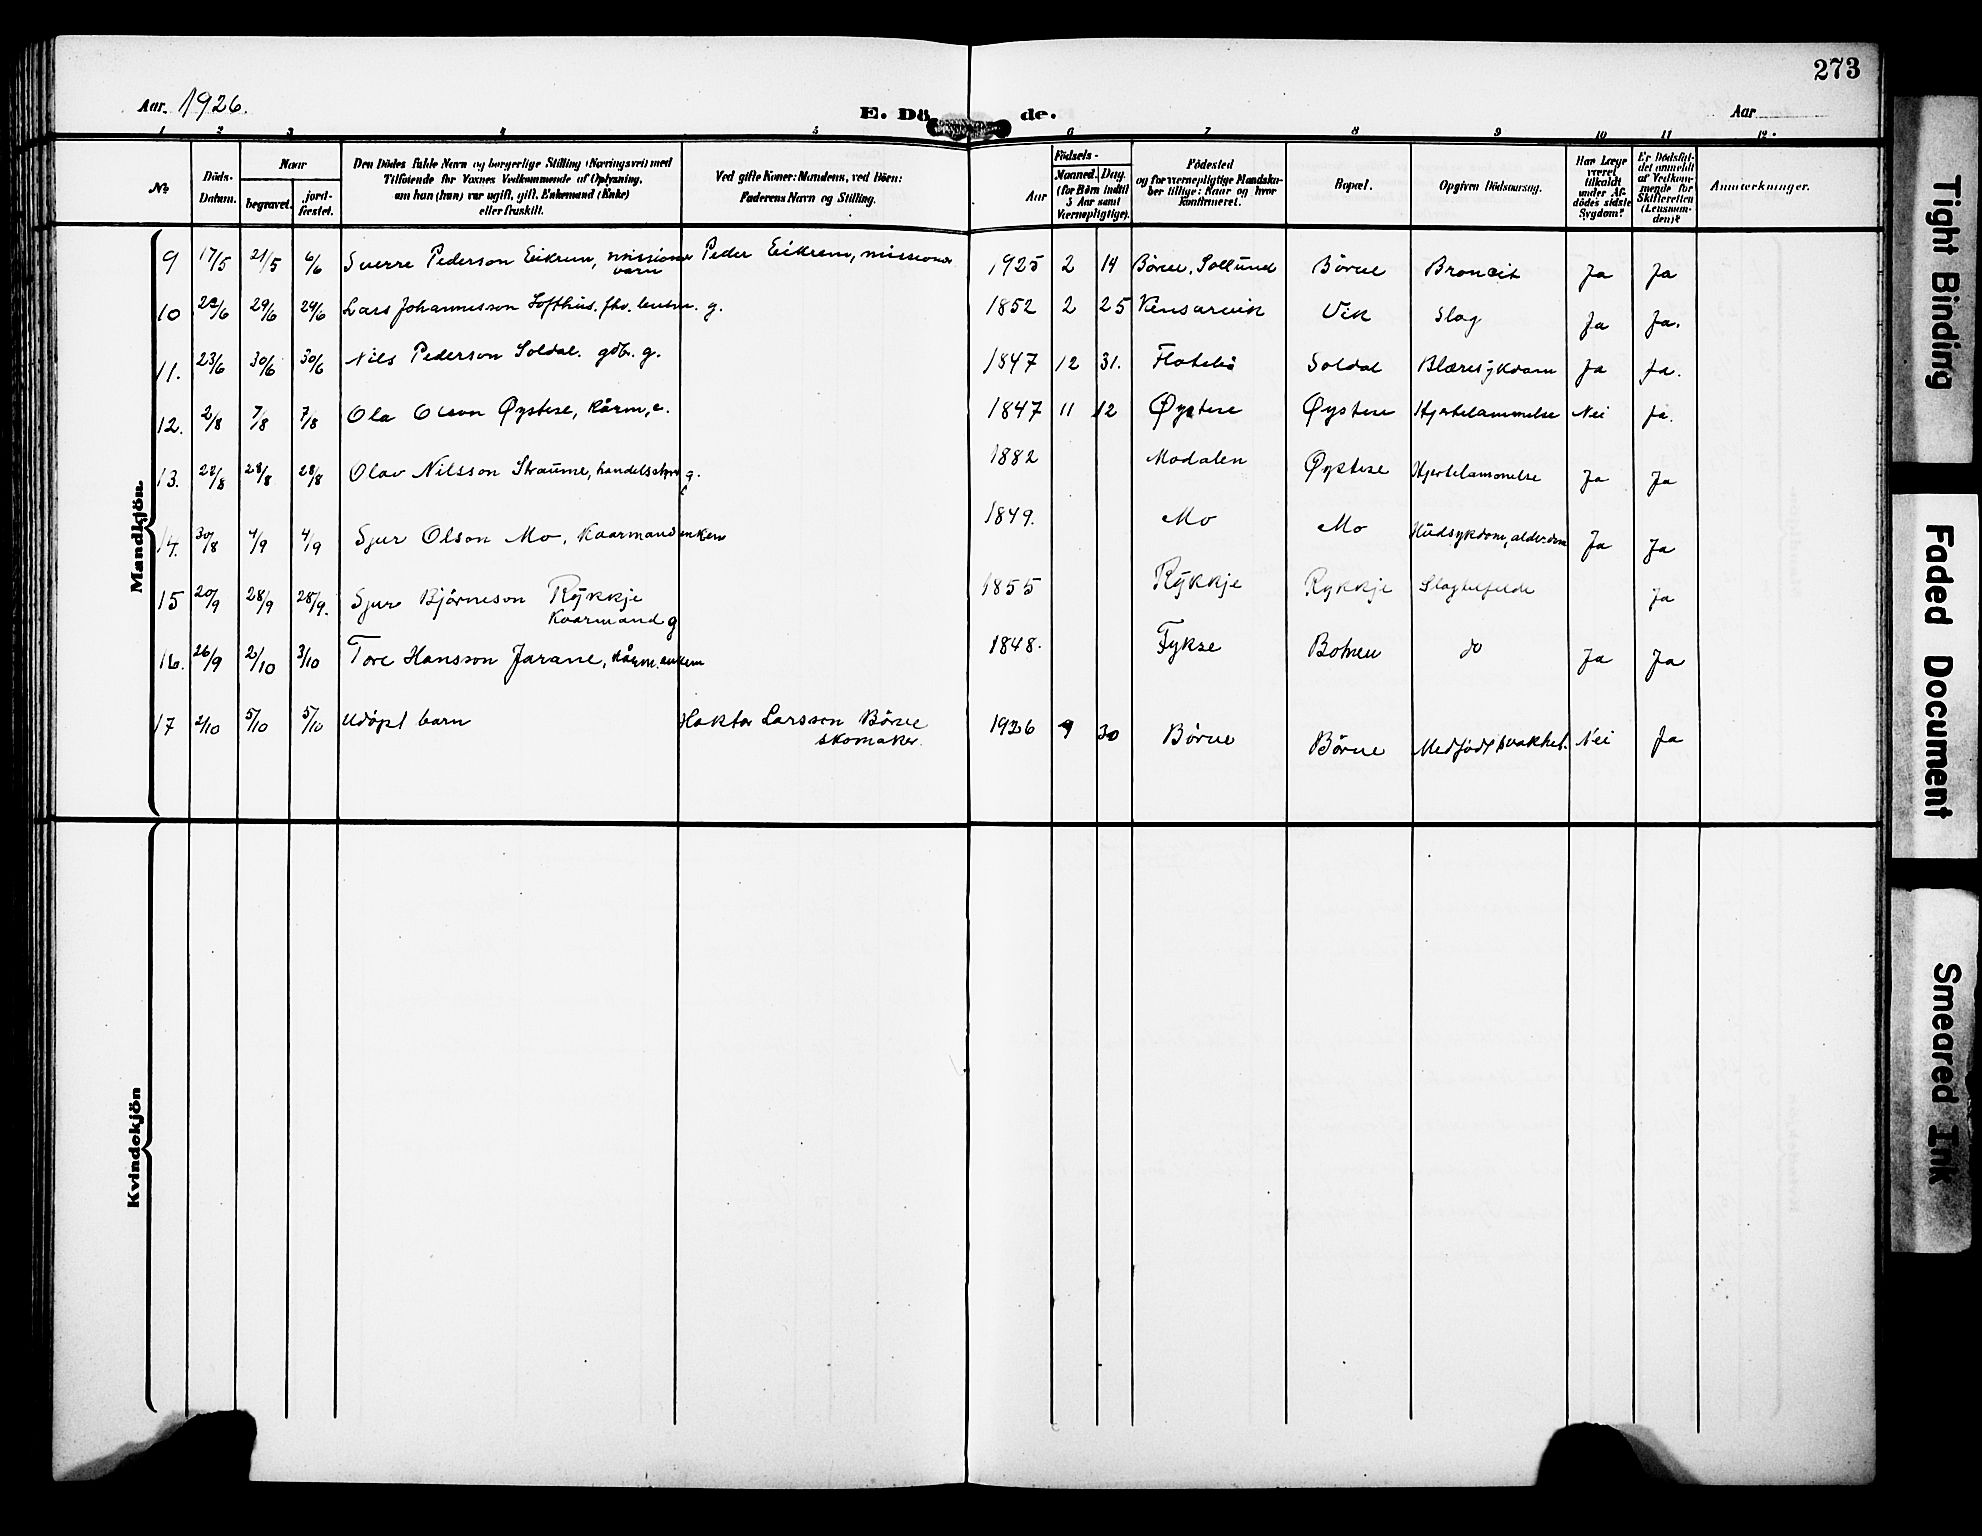 273
Aar. 1926.
E. Dö de.
Aar
1 2 3 4 5 6 7 8 9 10 11 12.
No
Döds-Datum.
Naar
begravet.
jord-fæstet.
Den Dödes fulde Navn og borgerlige Stilling (Næringsvei) med
Tilföiende for Voxnes Vedkommende af Oplysning,
om han (hun) var ugift, gift, Enkemand (Enke)
eller fraskilt.
Ved gifte Koner: Mandens, ved Börn:
Faderens Navn og Stilling.
Födsels-
Aar
Maaned. Dag.
(for Börn indtil
5 Aar samt
Værnepligtige).
Födested
og for værnepligtige Mandska-
ber tillige: Naar og hvor
konfirmeret.
Bopæl.
Opgiven Dödsaarsag.
Har Læge
været
tilkaldt
under Af-
dödes sidste
Sygdom?
Er Dödsfal-
det anmeldt
af Vedkom-
mende for
Skifteretten
(Lensman-
den)?
Anmærkninger.
Mandkjön.
9 17/5 21/5 6/6 Sverre Pederson Eikrem, missionær Peder Eikrem, missionær 1925 2 14 Börve, Børve Broncit Ja Ja
barn
10 29/6 29/6 Lars Johannesson Lofthus, fhv. lensm. g. 1852 2 25 Kinsarvik Vik Slag Ja Ja.
11. 23/6 30/6 30/6 Nils Pederson Soldal. gdbr. g. 1847 12 31. Soldal Blæresykdom Ja Ja.
12. 2/8 7/8 7/8 Ola Olson Øystese, Kårm, e. 1847 11 12 Øystese Øystese Hjertelammelse Nei Ja.
13. 22/8 28/8 28/8 Olav Nilsson Straume, g. 1882 Modalen Øystese Hjertelammelse Ja Ja
14. 30/8 4/9 4/9 Sjur Olson Mo, Kaarmand enkem 1849. Mo Mo Hudsykdom, alderdom Ja Ja
15 20/9 28/9 28/9. Sjur Bjørneson Rykkje 1855 Rykkje Rykkje Slagtilfelde Ja
Kaarmand g
16. 26/9 2/10 3/10 Tore Hansson Jarane, Kårm. enkem 1848. Fykse Botnen do Ja Ja
17 2/10 5/10 5/10 Udöpt barn Larsson Børve 1926 9 30 Børve Børve Medfödt svakhet. Nei Ja
skomaker.
Kvindekjön
Tight Binding
Faded Document
Smeared Ink